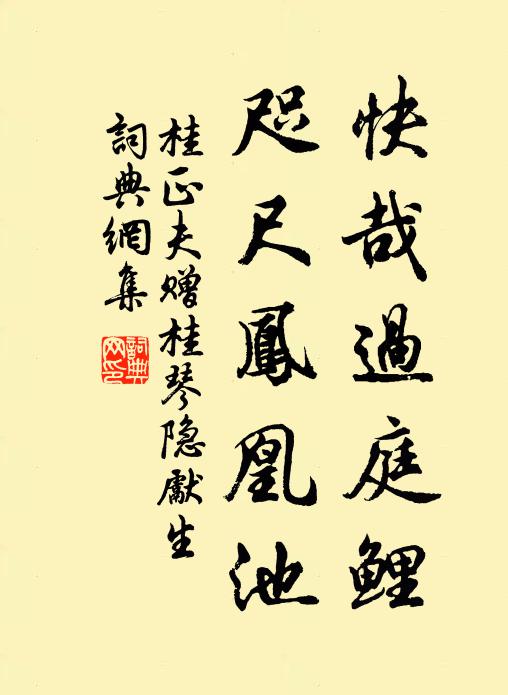 快哉過庭鯉
咫尺鳳凰池
桂正夫贈桂琴隐獻生
詞典網集
詞典網印